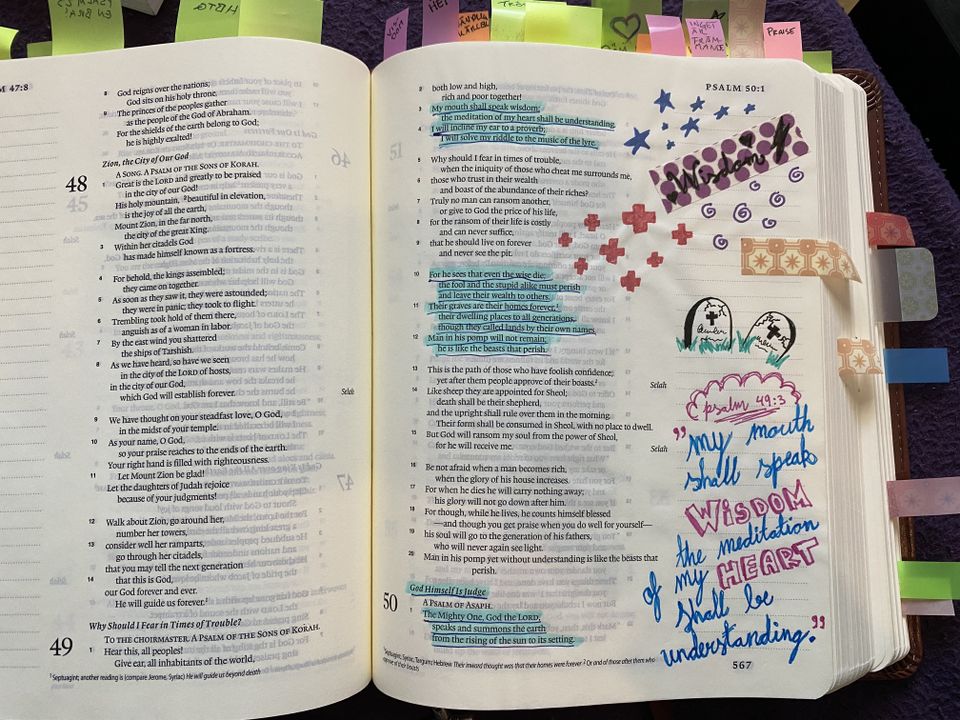 HBTG
WISDOM
HEJ
PRAISE
PSALM 47:8
8 God reigns over the nations;
God sits on his holy throne.
9 The princes of the peoples gather
as the people of the God of Abraham.
For the shields of the earth belong to God;
he is highly exalted!
Zion, the City of Our God
A SONG. A PSALM OF THE SONS OF KORAH.
48
1 Great is the LORD and greatly to be praised
in the city of our God!
His holy mountain, 2 beautiful in elevation,
is the joy of all the earth,
Mount Zion, in the far north,
the city of the great King.
3 Within her citadels God
has made himself known as a fortress. Selah
4 For behold, the kings assembled;
they came on together.
5 As soon as they saw it, they were astounded;
they were in panic; they took to flight.
6 Trembling took hold of them there,
anguish as of a woman in labor.
7 By the east wind you shattered
the ships of Tarshish.
8 As we have heard, so have we seen
in the city of the LORD of hosts,
in the city of our God,
which God will establish forever. Selah
9 We have thought on your steadfast love, O God,
in the midst of your temple.
10 As your name, O God,
so your praise reaches to the ends of the earth.
Your right hand is filled with righteousness.
11 Let Mount Zion be glad!
Let the daughters of Judah rejoice
because of your judgments!
12 Walk about Zion, go around her,
number her towers,
13 consider well her ramparts,
go through her citadels,
that you may tell the next generation
14 that this is God,
our God forever and ever.
He will guide us forever.1
Why Should I Fear in Times of Trouble?
49
TO THE CHOIRMASTER. A PSALM OF THE SONS OF KORAH.
1 Hear this, all peoples!
Give ear, all inhabitants of the world,
1 Septuagint; another reading is (compare Jerome, Syriac) He will guide us beyond death
PSALM 50:1
2 both low and high,
rich and poor together!
3 My mouth shall speak wisdom;
the meditation of my heart shall be understanding.
4 I will incline my ear to a proverb;
I will solve my riddle to the music of the lyre.
5 Why should I fear in times of trouble,
when the iniquity of those who cheat me surrounds me,
6 those who trust in their wealth
and boast of the abundance of their riches?
7 Truly no man can ransom another,
or give to God the price of his life,
8 for the ransom of their life is costly
and can never suffice,
9 that he should live on forever
and never see the pit.
10 For he sees that even the wise die;
the fool and the stupid alike must perish
and leave their wealth to others.
11 Their graves are their homes forever,1
their dwelling places to all generations,
though they called lands by their own names.
12 Man in his pomp will not remain;
he is like the beasts that perish.
13 This is the path of those who have foolish confidence;
yet after them people approve of their boasts.2 Selah
14 Like sheep they are appointed for Sheol;
death shall be their shepherd,
and the upright shall rule over them in the morning.
Their form shall be consumed in Sheol, with no place to dwell.
15 But God will ransom my soul from the power of Sheol,
for he will receive me. Selah
16 Be not afraid when a man becomes rich,
when the glory of his house increases.
17 For when he dies he will carry nothing away;
his glory will not go down after him.
18 For though, while he lives, he counts himself blessed
—and though you get praise when you do well for yourself—
19 his soul will go to the generation of his fathers,
who will never again see light.
20 Man in his pomp yet without understanding is like the beasts that
perish.
God Himself Is Judge
50
A PSALM OF ASAPH.
1 The Mighty One, God the LORD,
speaks and summons the earth
from the rising of the sun to its setting.
1 Septuagint, Syriac, Targum; Hebrew Their inward thought was that their homes were forever 2 Or and of those after them who
approve of their boasts
567
Wisdom
psalm 49:3
"my mouth
shall speak
WISDOM
the meditation
of my HEART
shall be
understanding."